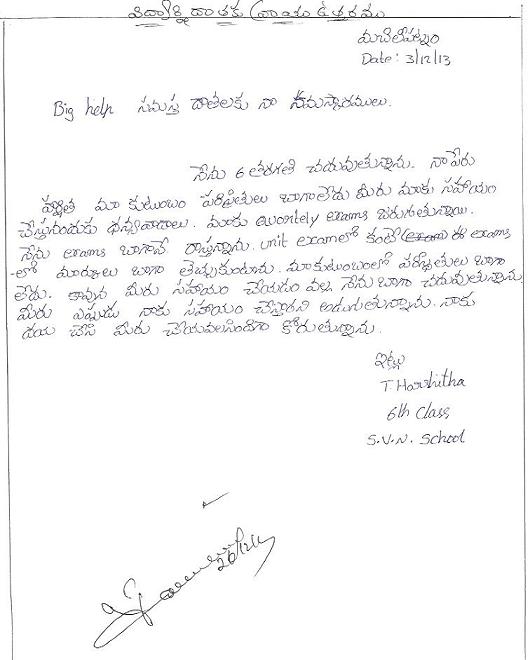 విద్యార్థి దాతకు వ్రాయు ఉత్తరము
మచిలీపట్నం
Date: 3/12/13
Big help సమస్త దాతలకు నా నమస్కారములు.
నేను 6 తరగతి చదువుతున్నాను. నా పేరు
హర్షిత మా కుటుంబం పరిస్థితులు బాగాలేదు మీరు మాకు సహాయం
చేస్తునందుకు ధన్యవాదాలు. మాకు Quontely exams జరుగుతున్నాయి.
నేను exams బాగానే రాస్తున్నాను. unit examలో కంటే (exam) ఈ exams
-లో మార్కులు బాగా తెచ్చుకుంటాను. మా కుటుంబంలో పరిస్థితులు బాగా
లేదు. కావున మీరు సహాయం చేయడం వల్ల నేను బాగా చదువుతున్నాను
మీరు ఎప్పుడు నాకు సహాయం చేస్తారని అడుగుతున్నాను. నాకు
దయ చేసి మీరు చేయవలసిందిగా కోరుతున్నాను.
ఇట్లు
T Harshitha
6th Class
S.V.N. School